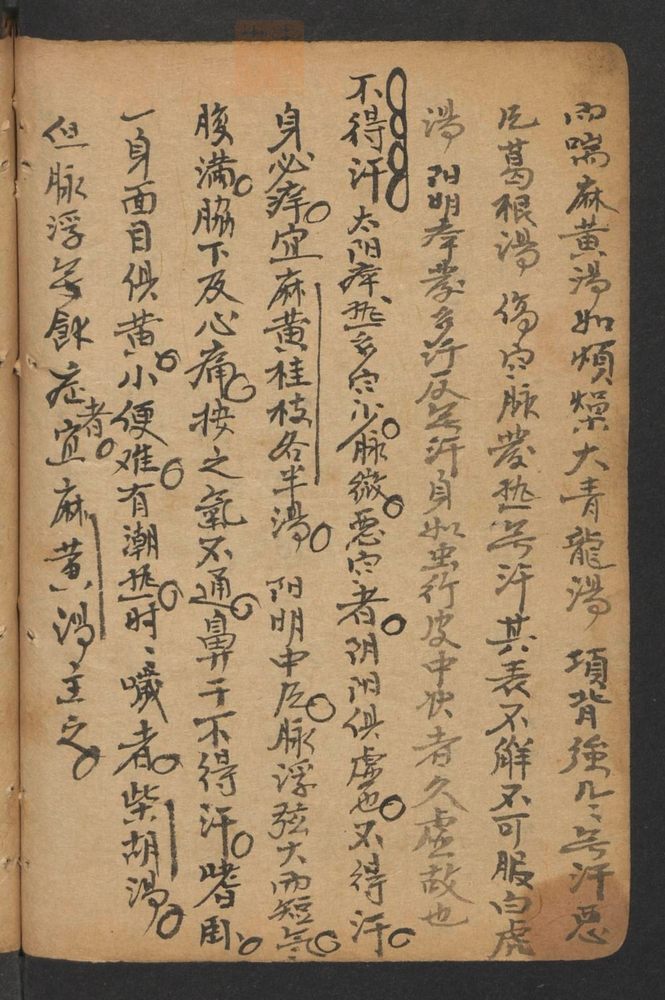 而喘麻黄湯如煩燥大青龍湯 項背強几〻無汗惡
风葛根湯 傷寒脉發热無汗其表不解不可服白虎
湯 阳明本發多汗反無汗身如虫行皮中状者久虚故也
不得汗 太阳病热多寒少脉微惡寒者阴阳俱虚也不得汗
身必痒宜麻黄桂枝各半湯 阳明中风脉浮弦大而短气
腹满脇下及心痛按之氣不通鼻干不得汗嗜卧
一身面目俱黄小便难有潮热时〻噦者柴胡湯
但脉浮無餘症者宜麻黄湯主之